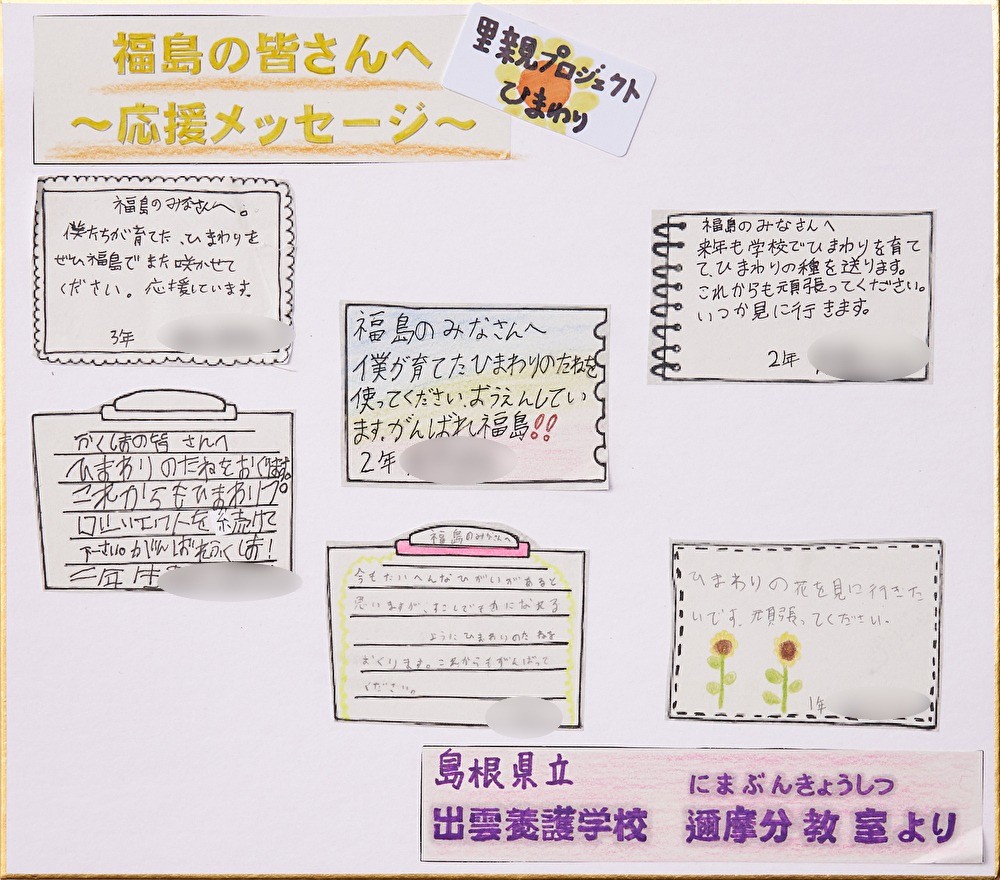 福島の皆さんへ
～応援メッセージ～
里親プロジェクト
ひまわり
福島のみなさんへ。
僕たちが育てた、ひまわりを
ぜひ福島でまた咲かせて
ください。応援しています
3年
福島のみなさんへ
来年も学校でひまわりを育て
て、ひまわりの種を送ります。
これからも頑張ってください。
いつか見に行きます。
2年
福島のみなさんへ
僕が育てたひまわりのたねを
使ってください。おうえんしてい
ます。がんばれ福島!!
2年
ふくしまの皆さんへ
ひまわりのたねをおくります。
これからもひまわりプ
ロジェクトを続けて
下さい。がんばれふくしま!
二年
福島のみなさんへ
今もたいへんなひがいがあると
思いますが、すこしでも
ようにひまわりのたねを
おくります。これからもがんばって
ください。
ひまわりの花を見に行きた
いです。頑張ってください。
1年
島根県立
にまぶんきょうしつ
出雲養護学校 邇摩分教室より